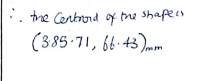 ∴ the Centroid of the shape is
(385.71, 66.43)mm